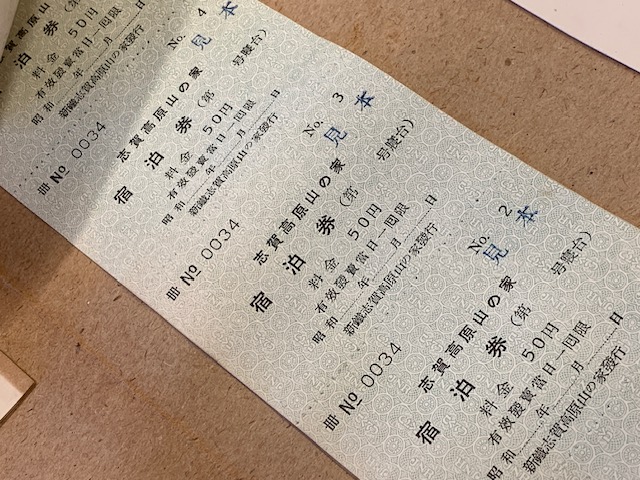 志賀高原山
泊券
料金 50円
有效發賣當日一回限
昭和 年 月 日
新鐵志賀高原山の家發行
冊 № 0034 No. 4
見本
志賀高原山の家
宿泊券(第 号寢台)
料金 50円
有效發賣當日一回限
昭和 年 月 日
新鐵志賀高原山の家發行
冊 № 0034 No. 3
見本
志賀高原山の家
宿泊券(第 号寢台)
料金 50円
有效發賣當日一回限
昭和 年 月 日
新鐵志賀高原山の家發行
冊 № 0034 No. 2
見本
志賀高原山の家
宿泊券(第 号寢台)
料金 50円
有效發賣當日一回限
昭和 年 月 日
新鐵志賀高原山の家發行